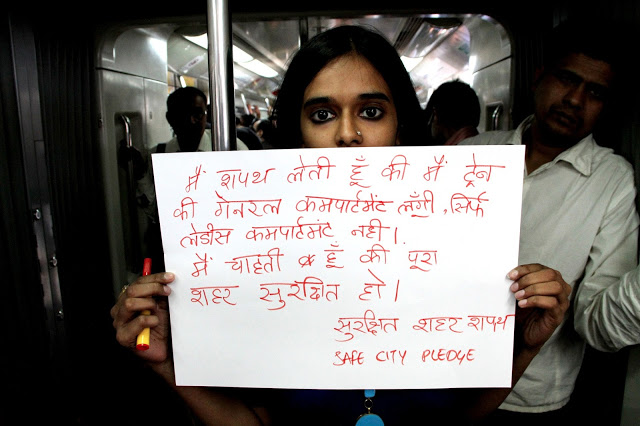 मैं शपथ लेती हूँ की मैं ट्रेन
की गेनरल कमपार्टमेंट लूँगी, सिर्फ
लेडीस कमपार्टमंट नही।
मैं चाहती हूँ की पूरा
शहर सुरंक्षित हो।
सुरक्षित शहर शपथ
SAFE CITY PLEDGE